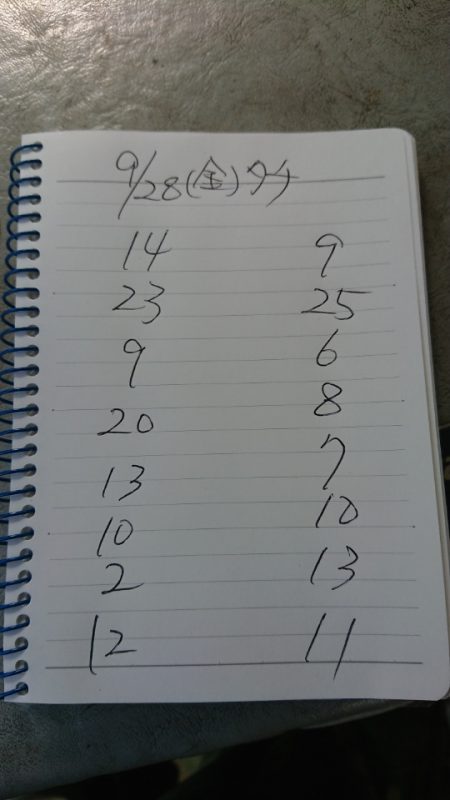 9/28(金)
14 9
23 25
9 6
20 8
13 7
10 10
2 13
12 11